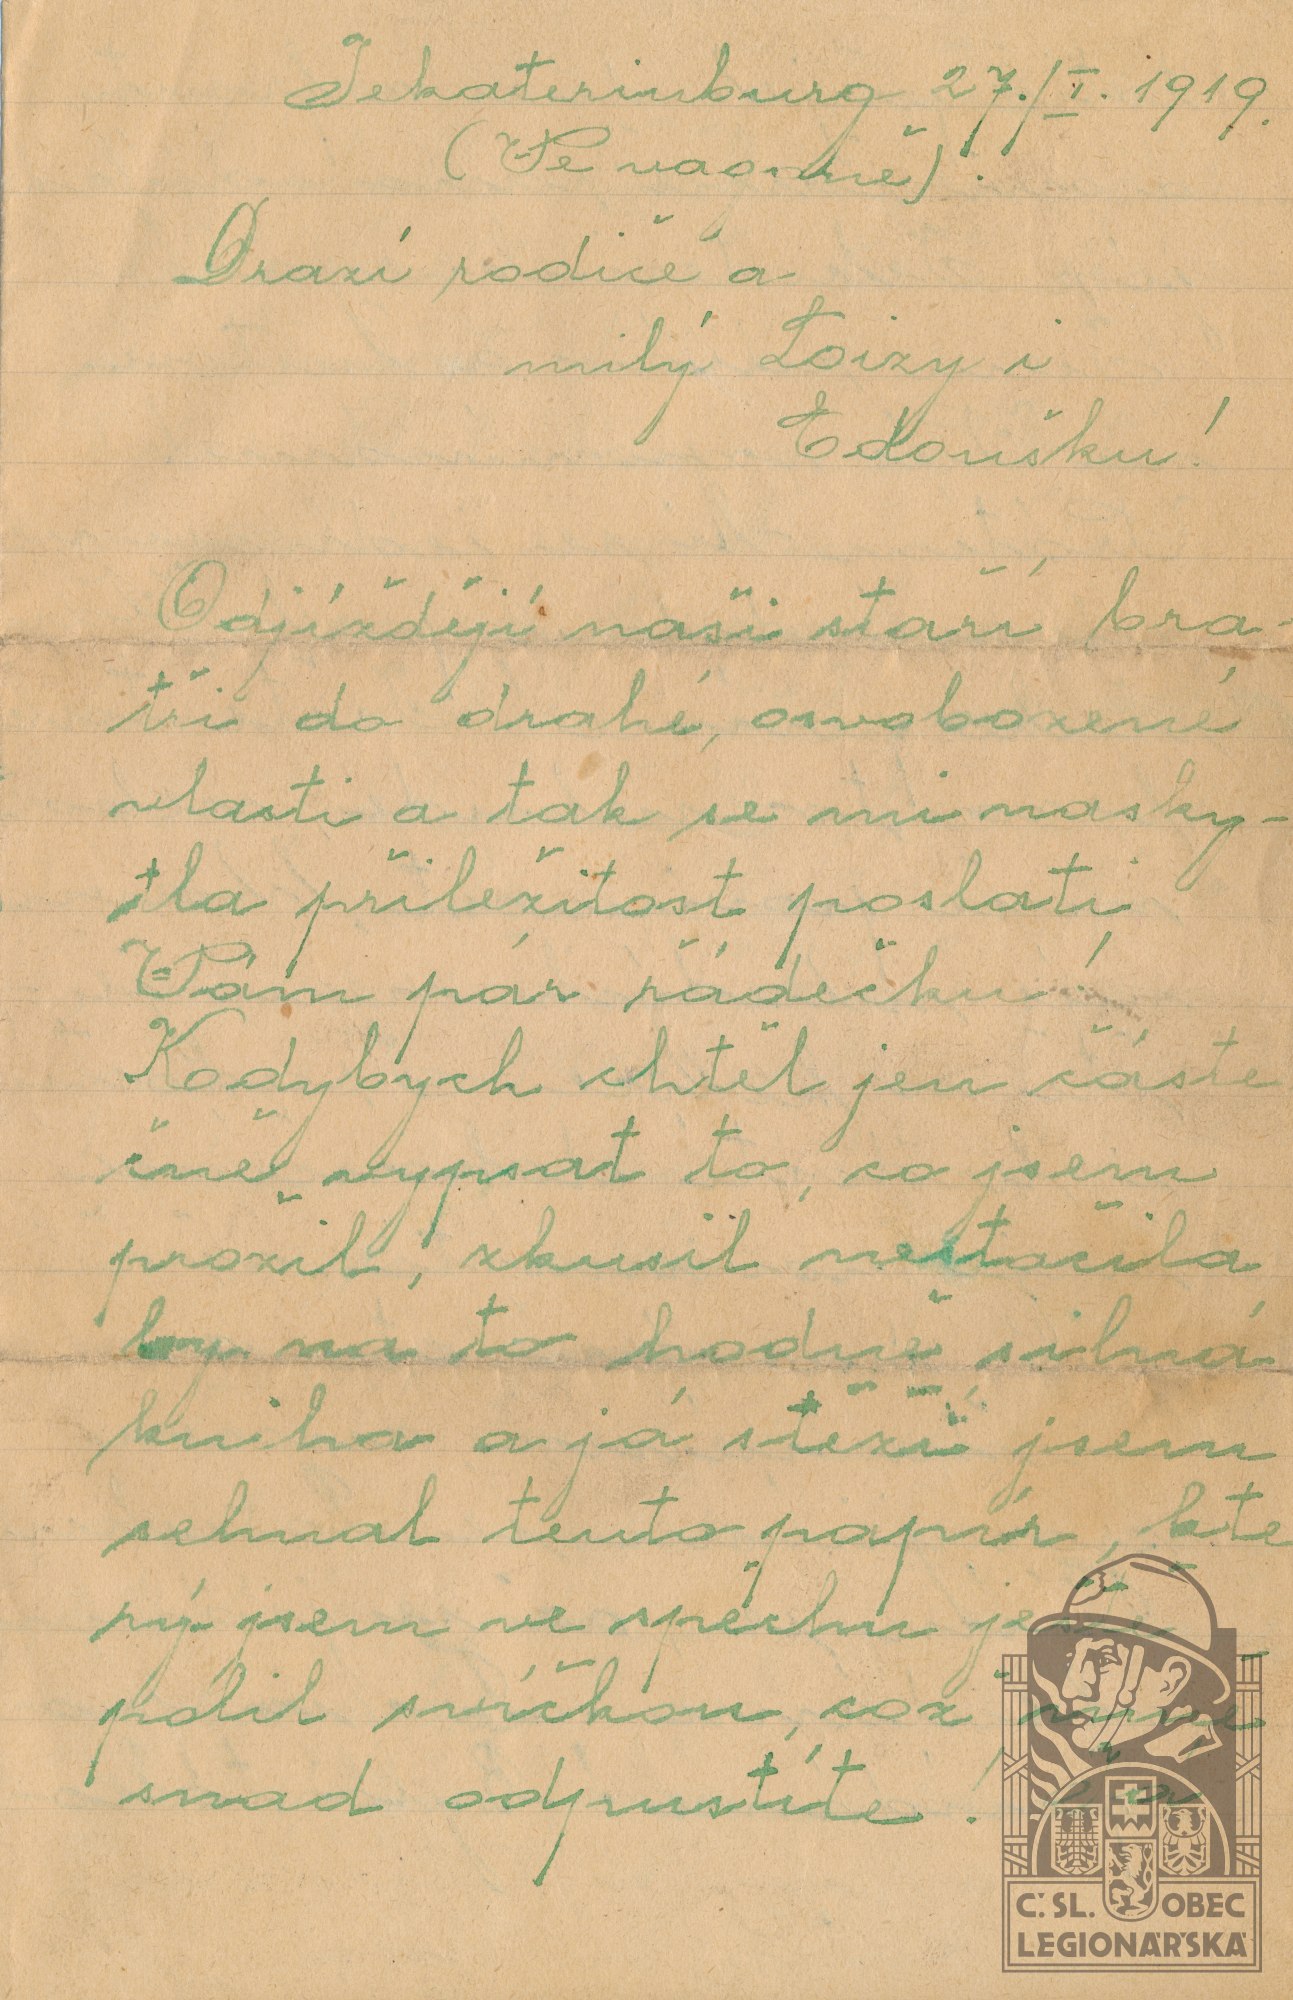 Jekaterinburg 27./I. 1919.
(Ve vagoně).
Drazí rodiče a
milý Loizy i
Edoušku!
Odjíždějí naši staří bra-
tři do drahé, osvobozené
vlasti a tak se mi nasky-
tla příležitost poslati
Vám pár řádečků!
Kdybych chtěl jen částe
čně vypsat to, co jsem
prožil, zkusil nestačila
by na to hodně silná
kniha a já stěží jsem
sehnal tento papír, kte
rý jsem ve spěchu ještě
polil svíčkou, což mně
snad odpustíte!
Č. SL. OBEC
LEGIONÁŘSKÁ